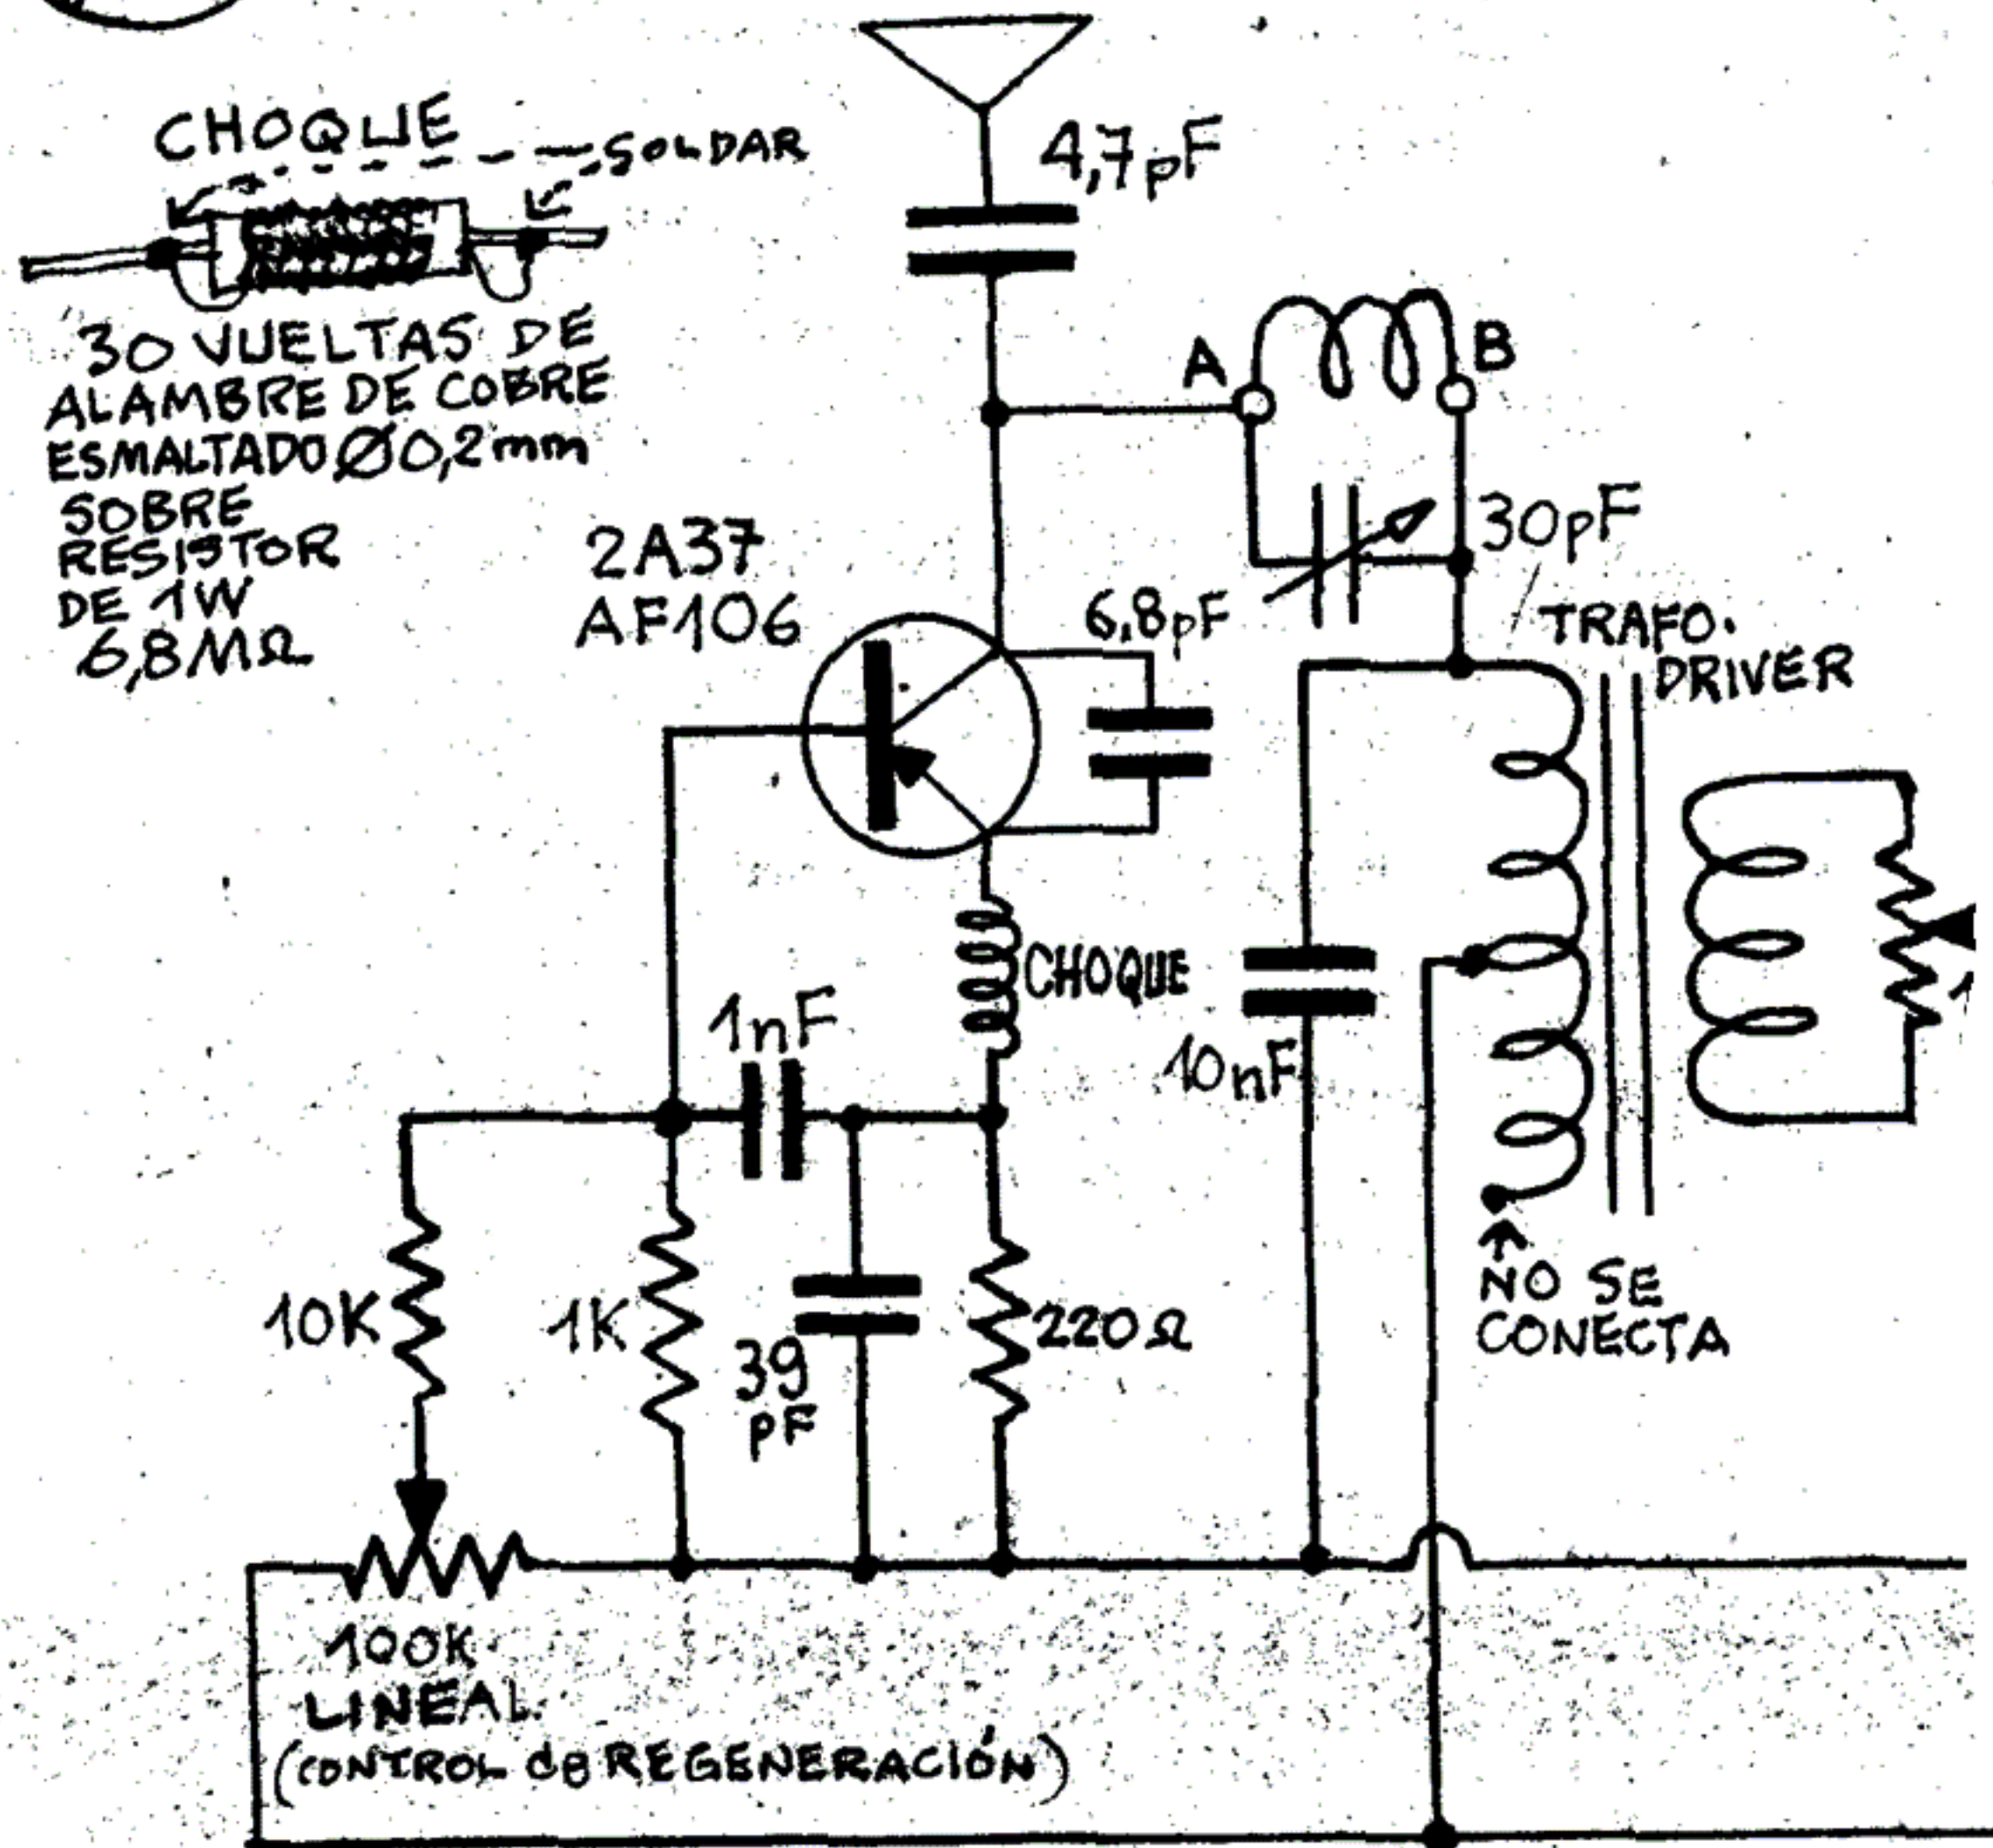 CHOQUE
SOLDAR
30 VUELTAS DE
ALAMBRE DE COBRE
ESMALTADO Ø0,2mm
SOBRE
RESISTOR
DE 1W
6,8MΩ
4,7pF
A
B
30pF
2A37
AF106
6,8pF
TRAFO.
DRIVER
CHOQUE
1nF
10nF
10K
1K
39
pF
220Ω
NO SE
CONECTA
100K
LINEAL.
(CONTROL de REGENERACIÓN)